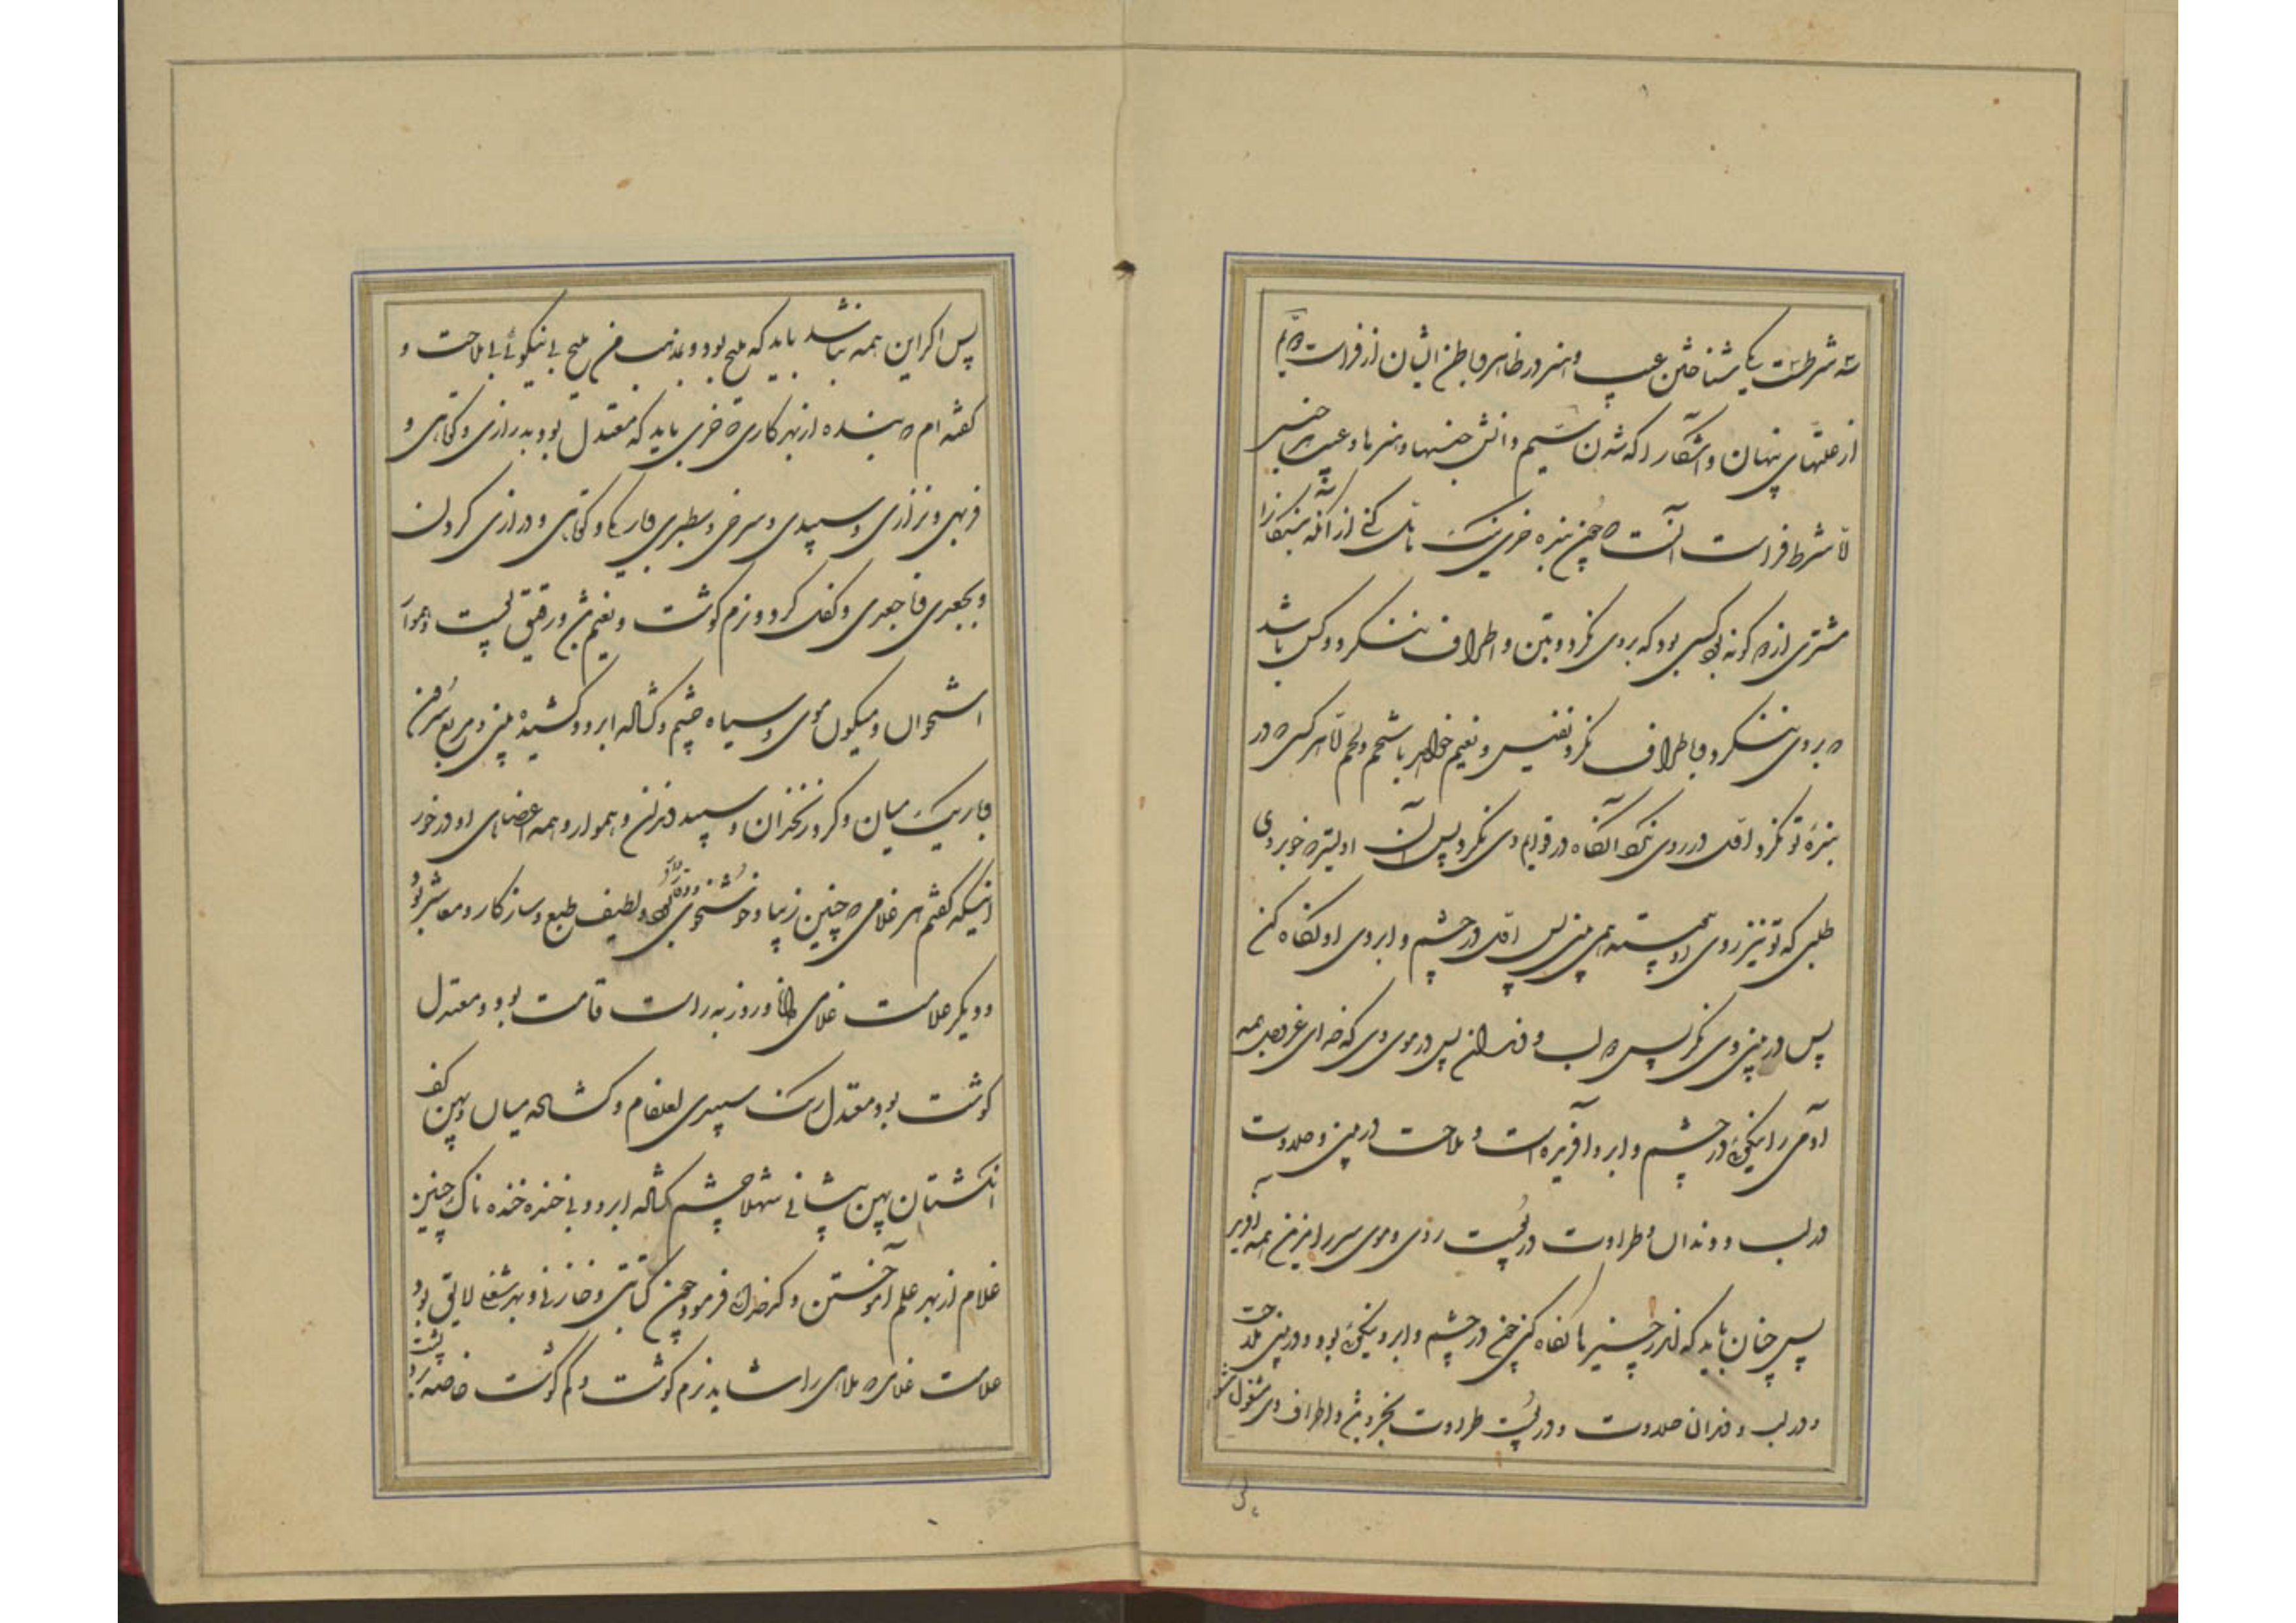 سه شرطست یکی شناختن عیب و هنر در ظاهر و باطن ایشان از فراست دوم
از علتهای پنهان و آشکارا آکه شدن سیم دانش جنسها و هنرها و عیب هر جنسی
اما شرط فراست آنست که چون بنده خری نیک تامل کنی از آنکه بندکانرا
مشتری از هر کونه بود کسی بود که بروی نکرد و بتن و اطراف ننکرد و کس باشد
که بروی ننکرد و باطراف نکرد نفیس و نعیم خواهد با شحم و لحم اما هر کسی که در
بنده تو نکرد اول در روی نکرد آنکاه در قوایم وی نکرد پس آن اولیتر که خوبروی
طلبی که تو نیز روی او پیوسته همی بینی پس اول در چشم و ابروی او نکاه کن
پس در بینی وی نکر پس در لب و دندان پس در موی وی که خدای عزوجل همه
آدمی را نیکویی در چشم و ابرو آفریده است و ملاحت در بینی و حلاوت
در لب و دندان و طراوت در پوست روی و موی سر را مزین این همه آفرید
پس چنان باید که اندر چیزها نکاه کنی چون در چشم و ابرو نیکویی بود و در بینی ملاحت
و در لب و دندان حلاوت و در پوست طراوت بخر و بتن و اطراف وی مشغول مشو
پس اکر این همه نباشد باید که ملیح بود و بمذهب من ملیح بی نیکوئی به که نیکوئی بی ملاحت و
کفته ام که بنده از بهر کاری که خری باید که معتدل بود بدرازی و کوتاهی و
فربهی و نزاری و سپیدی و سرخی و سطبری و باریکی و کوتاهی و درازی کردن
و بجعدی و ناجعدی و کفک کرد و نرم کوشت و نعیم تن و رقیق پوست و هموار
استخوان و میکون موی و سیاه چشم و کشاده ابرو و کشیده بینی و مربع سرین
و باریک میان و کرد زنخدان و سپید دندان و هموار و همه اعضاهای او در خور
اینکه کفتم هر غلامی که چنین زیبا و خوشخوی بود و لطیف طبع و سازکار و معاشر بود
و دیکر علامت غلامی دانا و روزبه راست قامت بود و معتدل
کوشت بود معتدل رنک سپیدی لعلفام و کشاده میان و پهن کف
انکشتان پهن پیشانی شهلا چشم کشاده ابرو و بی خنده خنده ناک چنین
غلام از بهر علم آموختن و کدخدائی فرمود چون کتابتی و خازنی و بهر شغلی لایق بود
علامت غلامی که ملاهی را شاید نرم کوشت و کم کوشت خاصه بر پشت